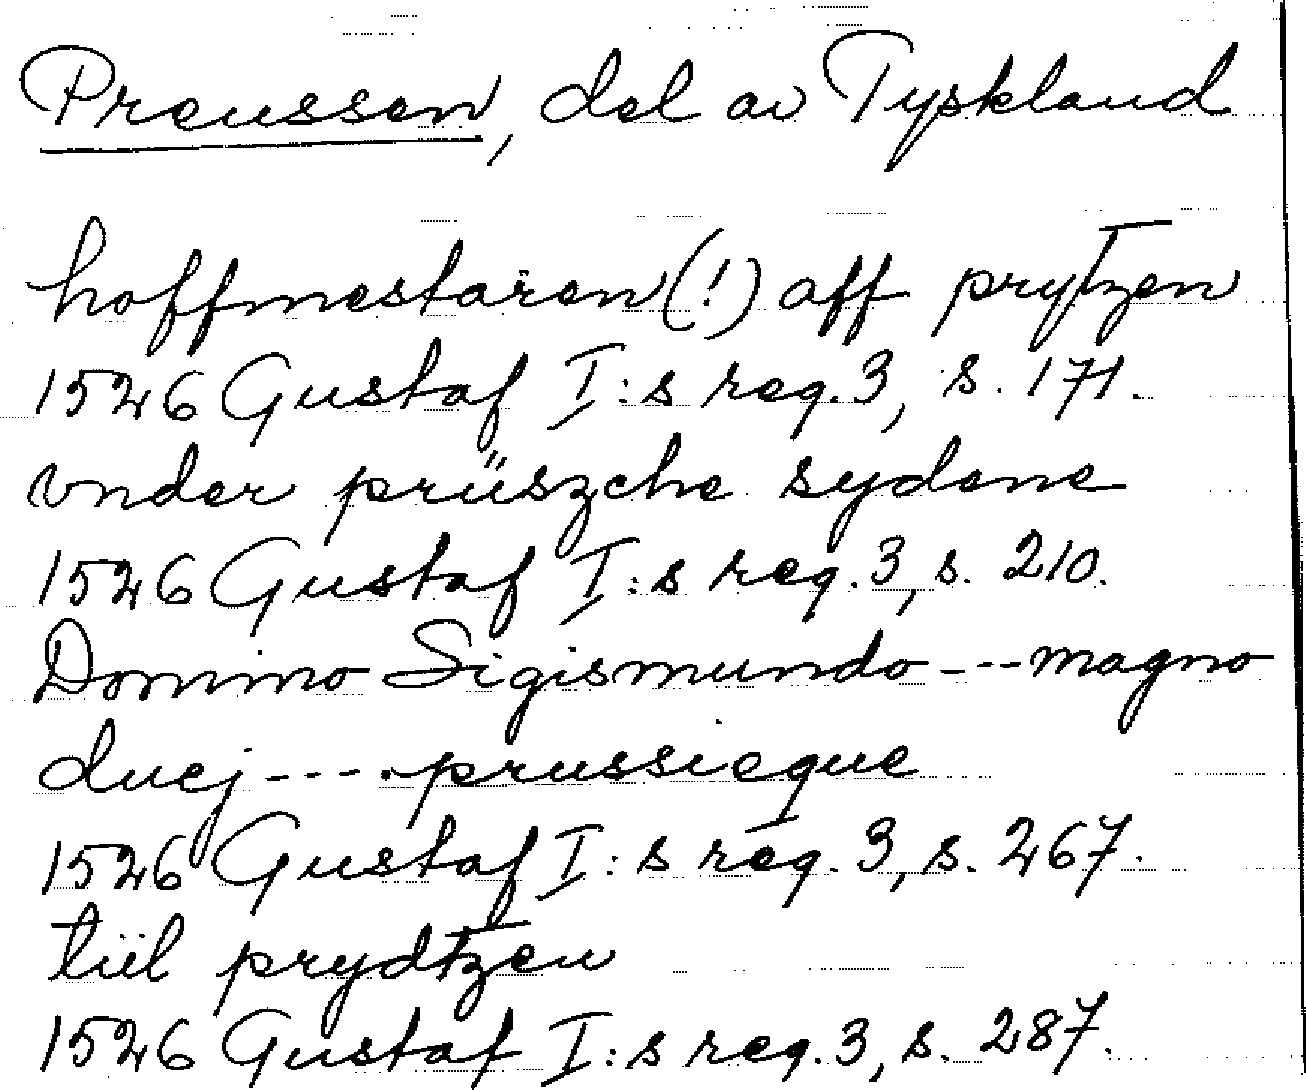 Preussen, del av Tyskland
hoffmestaren (!) aff prytzen
1526 Gustaf I:s reg. 3, s. 171.
vnder prüszche sydene
1526 Gustaf I:s reg. 3, s. 210.
Domino Sigismundo --- magno
ducj ---. prussieque
1526 Gustaf I:s reg. 3, s. 267.
tiil prydtzen
1526 Gustaf I:s reg. 3, s. 287.